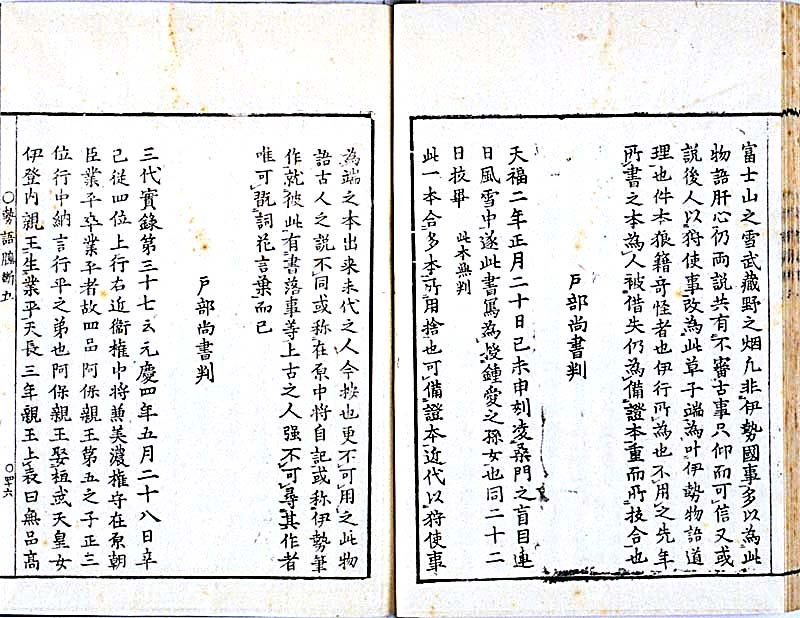 富士山之雪武蔵野之烟凢非伊勢國事多以為此
物語肝心仍両説共有不審古事只仰而可信又或
説後人以狩使事改為此草子端為叶伊勢物語道
理也件本狼籍奇怪者也伊行所為也不用之先年
所書之本為人被借失仍為備證本重而所挍合也
戸部尚書判
天福二年正月二十日己未申刻凌桑門之盲目連
日風雪中遂此書冩為授鍾愛之孫女也同二十二
日挍畢 此本無判
此一本合多本所用捨也可備證本近代以狩使事
為端之本出来末代之人今按也更不可用之此物
語古人之説不同或称在原中将自記或称伊勢筆
作就彼此有書落事等上古之人强不可尋其作者
唯可翫詞花言葉而已
戸部尚書判
三代實録第三十七云元慶四年五月二十八日辛
已從四位上行右近衞権中将兼美濃権守在原朝
臣業平卒業平者故四品阿保親王第五之子正三
位行中納言行平之弟也阿保親王娶桓武天皇女
伊登内親王生業平天長三年親王上表曰無品髙
○勢語臆断五
○四十六